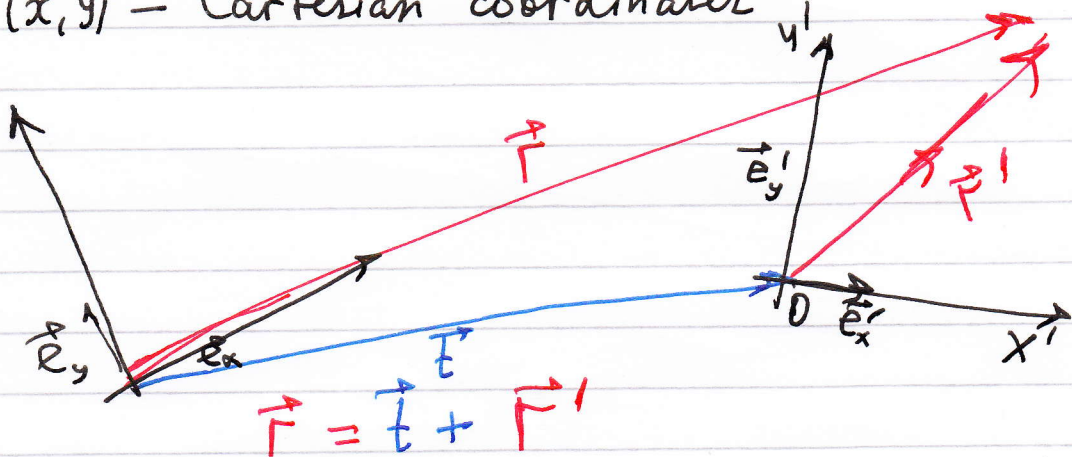 (x,y) — Cartesian coordinates
y'
r⃗
e⃗y'
r⃗'
e⃗y
e⃗x
t⃗
O
e⃗x'
X'
r⃗ = t⃗ + r⃗'